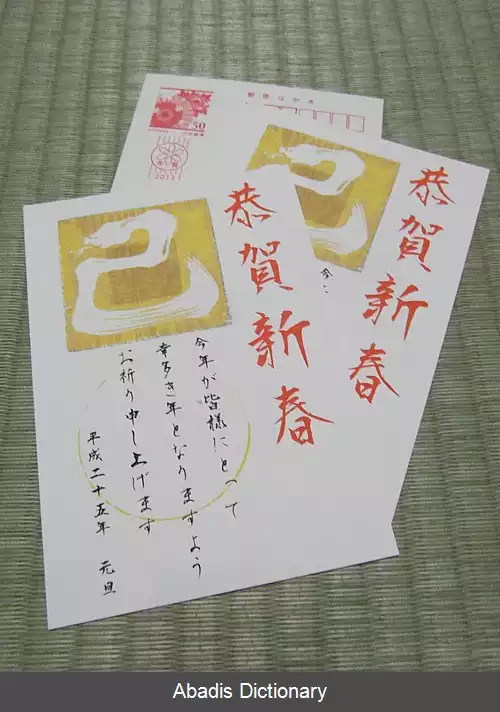 郵便はがき
50
2013
己
恭賀新春
今年が皆様にとって
幸多き年となりますよう
お祈り申し上げます
平成二十五年　元旦
己
恭賀新春
今
Abadis Dictionary